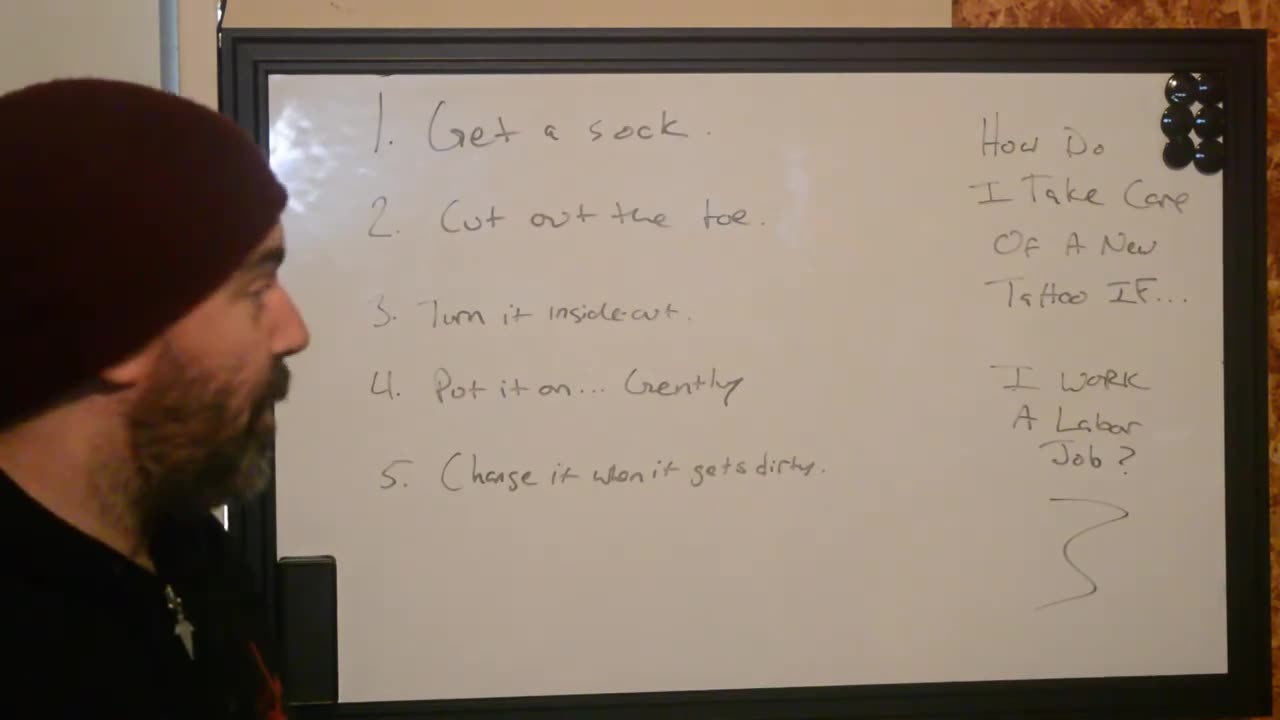 1. Get a sock.
2. Cut out the toe.
3. Turn it inside-out.
4. Put it on... Gently
5. Change it when it gets dirty.
How Do
I Take Care
Of A New
Tattoo IF...
I WORK
A Labor
Job?